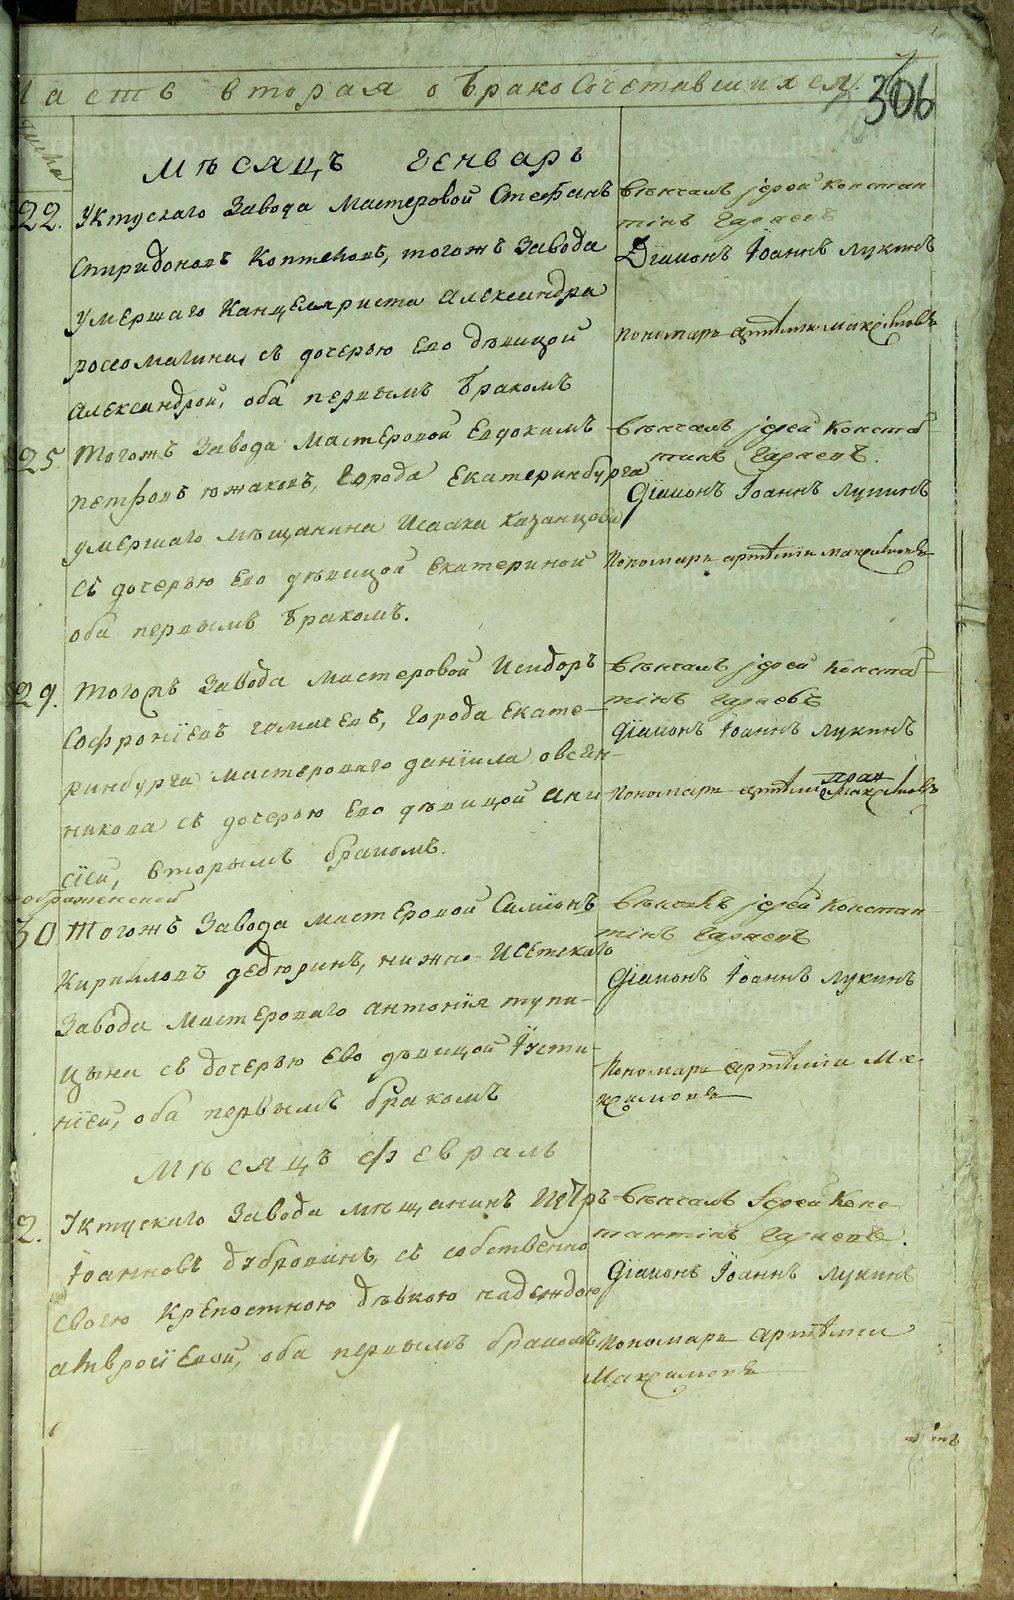 Часть вторая о бракосочетавшихся.
306
числа
Мѣсяцъ Генварь
22. Уктускаго Завода Мастеровой Стефанъ
Спиридоновъ Коптеловъ, тогожъ Завода
умершаго Канцеляриста Александра
россомагина, съ дочерью Его дѣвицой
Александрой, оба первымъ бракомъ
Вѣнчалъ јерей констан
тинъ
Дїаконъ Їоаннъ лукинъ
Пономарь артѣмїи максімовъ
25. Тогожъ Завода Мастеровой Евдокимъ
петровъ южаковъ, города Екатеринбурга
умершаго мѣщанина Исаака Казанцова
съ дочерью Его дѣвицой Екатериной
оба первымъ бракомъ.
Вѣнчалъ јерей Конста
тинъ
Дїаконъ Їоаннъ Лукинъ
Пономарь артѣмїи максимовъ
29. Тогожъ Завода Мастеровой Исидоръ
Софронїевъ, города Екате-
ринбурга Мастероваго данїила овсян-
никова съ дочерью Его дѣвицой ани
сїей, вторымъ бракомъ.
Вѣнчалъ јерей Конста-
тінъ
Дїаконъ Їоаннъ Лукинъ
Пономарь артѣми Максімовъ
30 Тогожъ Завода мастеровой Симїонъ
Кириловъ дедюринъ, нижно-Исетскаго
Завода Мастероваго антонїя тупи-
цына съ дочерью Ево дѣвицой Їусти-
нїей, оба первымъ бракомъ
Вѣнчалъ јерей Констан-
тінъ
Дїаконъ Їоаннъ Лукинъ
Пономарь артѣмїи Ма-
ксимовъ
Мѣсяцъ февраль
2. Уктускаго Завода мѣщанинъ Петръ
Їоанновъ дубровинъ, съ собственно
своею крепостною дѣвкою надеждою
амвросїевой, оба первымъ бракомъ
Вѣнчалъ Јерей Конс
тантінъ
Дїаконъ Їоаннъ Лукинъ
Пономарь артѣмїи
Максимовъ
METRIKI.GASO-URAL.RU